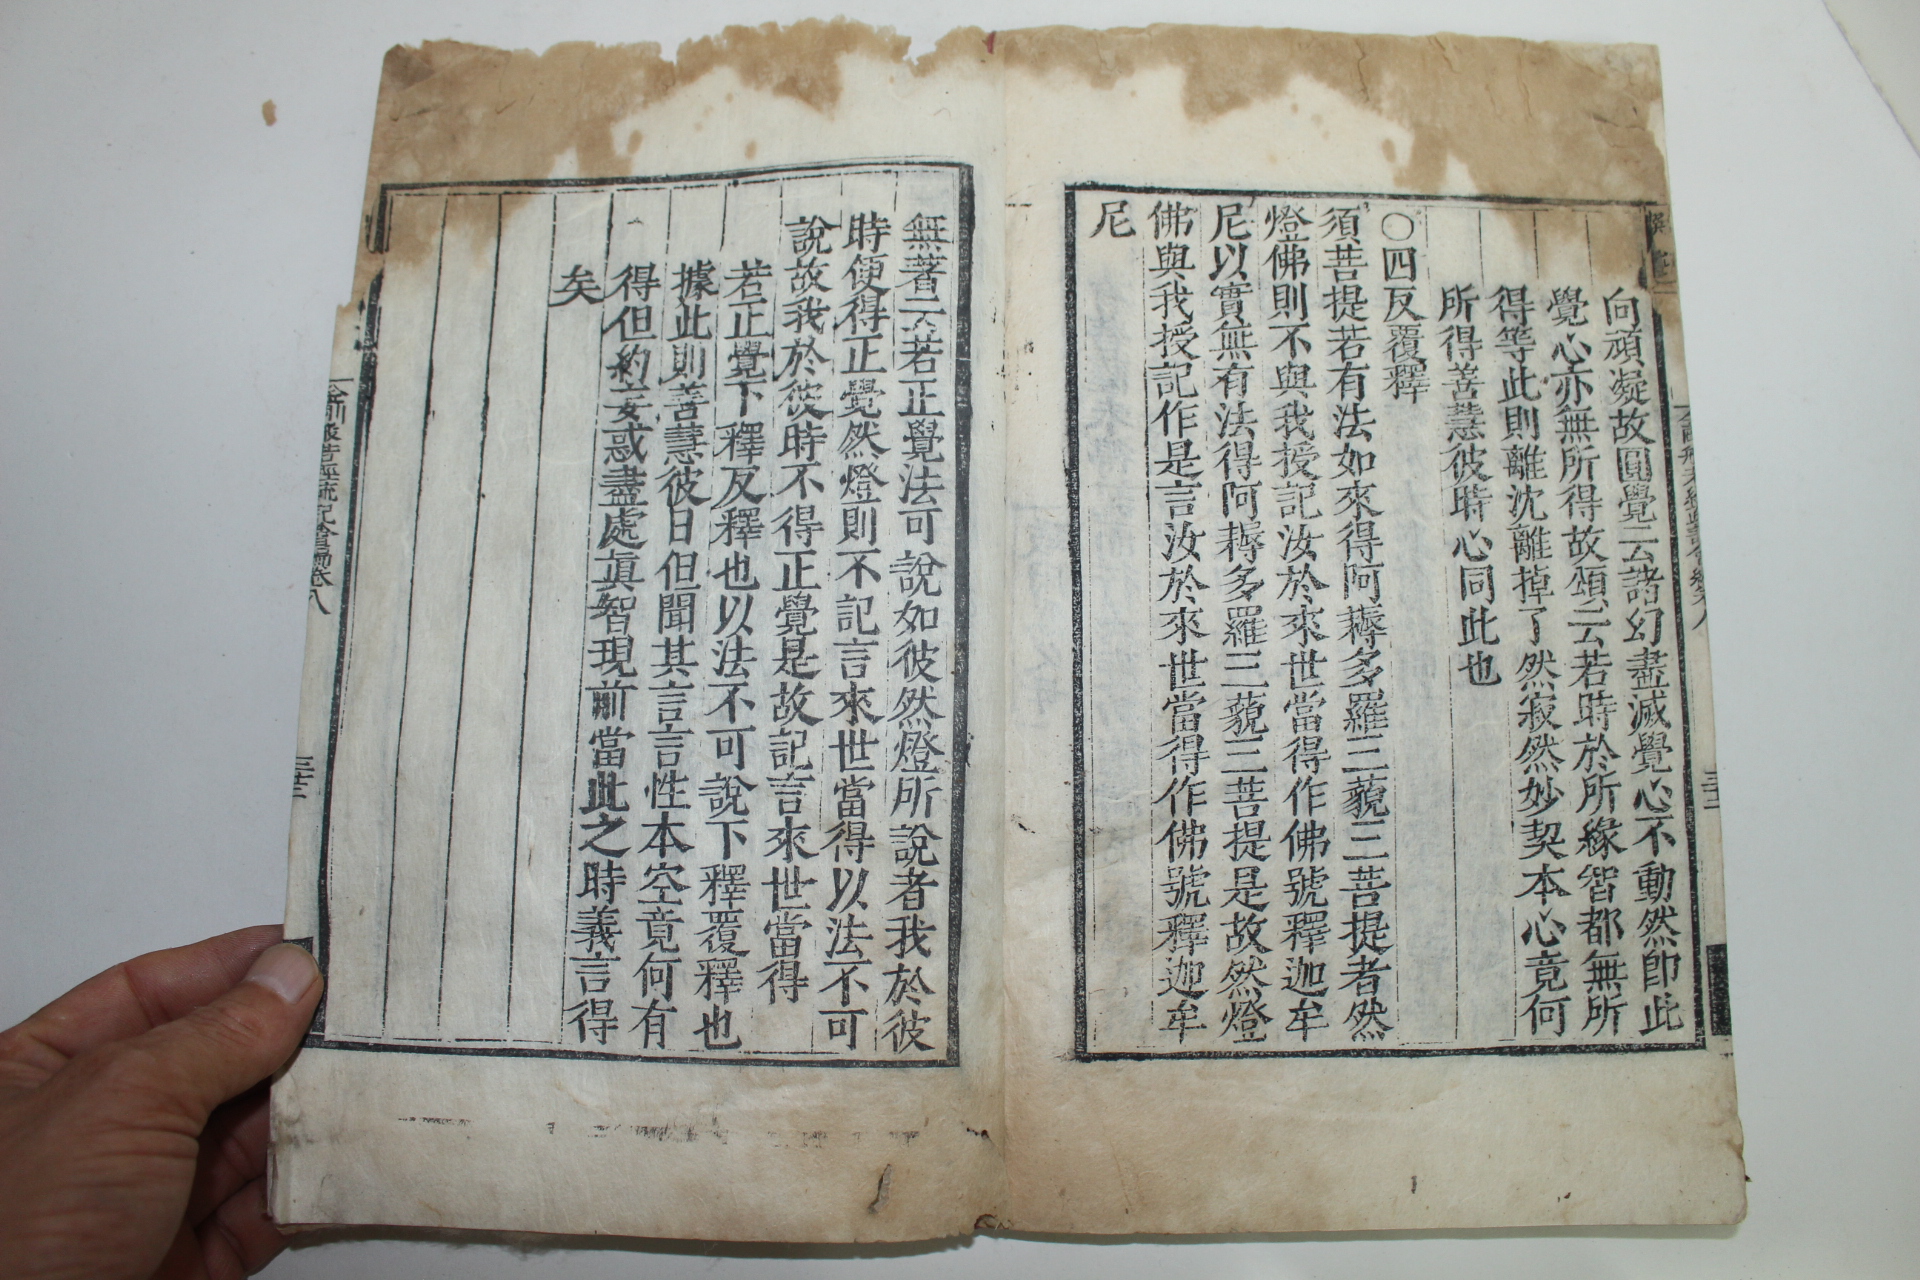 向頑癡故圓覺云諸幻盡滅覺心不動然卽此
覺心亦無所得故頌云若時於所緣智都無所
得等此則離沈離掉了然寂然妙契本心竟何
所得善慧彼時心同此也
○四反覆釋
須菩提若有法如來得阿耨多羅三藐三菩提者然
燈佛則不與我授記汝於來世當得作佛號釋迦牟
尼以實無有法得阿耨多羅三藐三菩提是故然燈
佛與我授記作是言汝於來世當得作佛號釋迦牟
尼
無著云若正覺法可說如彼然燈所說者我於彼
時便得正覺然燈則不記言來世當得以法不可
說故我於彼時不得正覺是故記言來世當得
若正覺下釋反釋也以法不可說下釋覆釋也
據此則善慧彼日但聞其言言性本空竟何有
得但約妄惑盡處眞智現前當此之時義言得
矣
金剛般若經疏記會編卷八
三十二